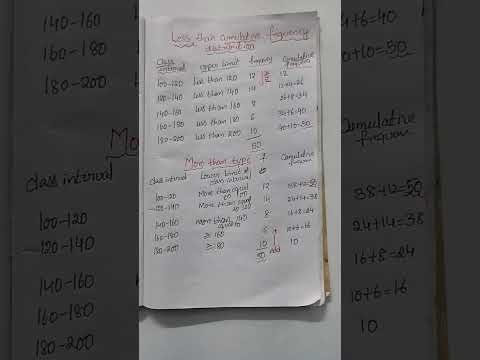 Less than cumulative frequency
distribution
Class interval upper limit frequency Cumulative frequency
100-120 less than 120 12 12
120-140 less than 140 14 12+14=26
140-160 less than 160 8 26+8=34
160-180 less than 180 6 34+6=40
180-200 less than 200 10 40+10=50
50
More than type
Class interval Lower limit of class interval Cumulative frequency
100-120 More than equal to 100 12 38+12=50
120-140 More than equal to 120 14 24+14=38
140-160 more than 140 equal to 8 16+8=24
160-180 ≥ 160 6 10+6=16
180-200 ≥ 180 10 10
50 Add
140-160
160-180
180-200
Mo
Class interval
100-120
120-140
140-160
160-180
180-200
4+6=40
0+10=50
Cumulative
frequency
38+12=50
24+14=38
16+8=24
10+6=16
10